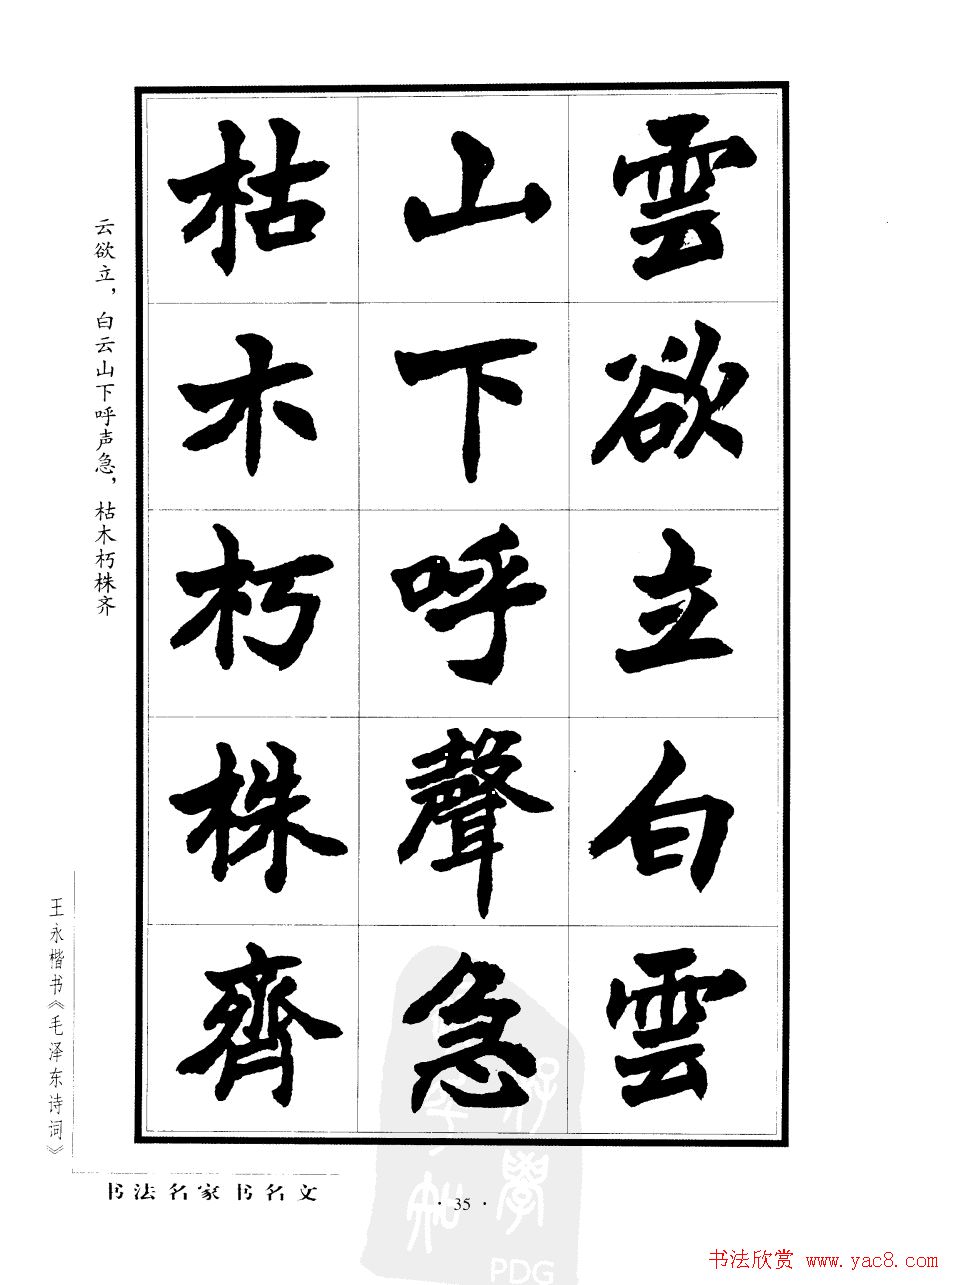 雲欲立白雲
山下呼聲急
枯木朽株齊
云欲立，白云山下呼声急，枯木朽株齐
王永楷书《毛泽东诗词》
书法名家书名文
· 35 ·
PDG
书法欣赏 www.yac8.com